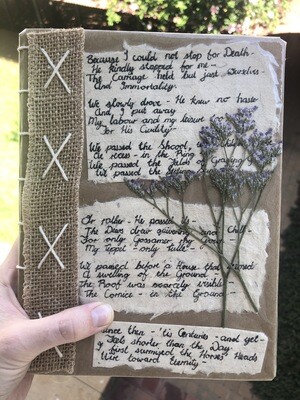 Because I could not stop for Death -
He kindly stopped for me -
The Carriage held but just Ourselves -
And Immortality.
We slowly drove - He knew no haste
And I put away
My labour and my leisure
For His Civility -
We passed the School,
At recess - in the Ring
We passed the Fields of Grazing
We passed the
Or rather - He passed Us -
The Dews drew quivering and Chill -
For only Gossamer, my Gown -
My Tippet - only Tulle -
We before a House that
A swelling of the Ground -
The Roof was scarcely visible -
The Cornice - in the Ground -
Since then - 'tis Centuries - and yet -
Feels shorter than the Day
I first surmised the Horses' Heads
Were toward Eternity -